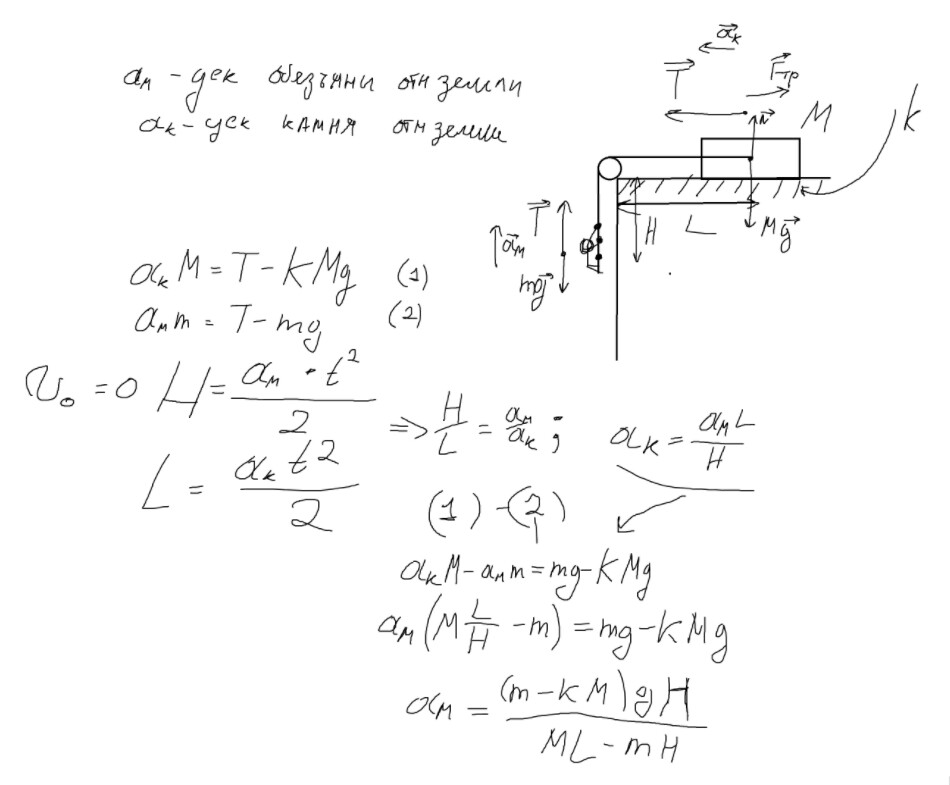 aм - уск обезъяни отн земли
aк - уск камня отн земли
a⃗к
T⃗
F⃗тр
N⃗
M
k
T⃗
a⃗м
H
L
Mg⃗
mg⃗
aкM = T - kMg (1)
aмm = T - mg (2)
v₀ = 0 H = aм · t² / 2
L = aк t² / 2
=> H/L = aм/aк ; aк = aмL/H
(1) - (2)
aкM - aмm = mg - kMg
aм(M L/H - m) = mg - kMg
aм = (m - kM)gH / ML - mH